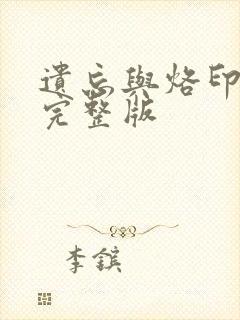 遺忘與烙印
完整版
李鑌